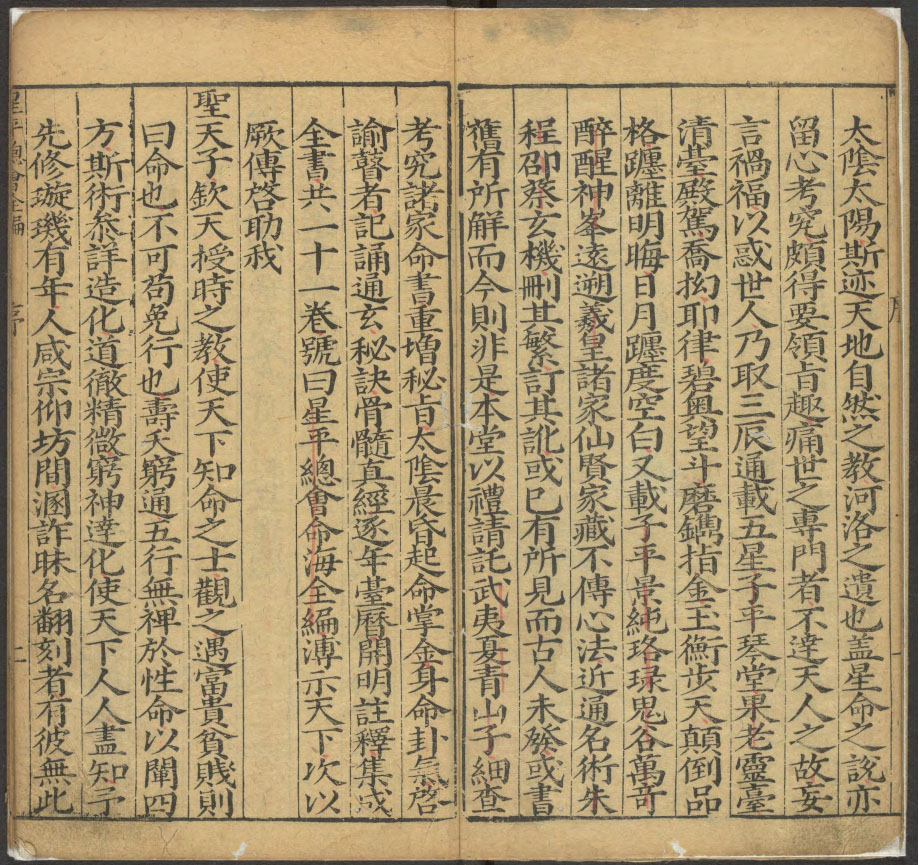 太陰太陽斯迹天地自然之教河洛之遺也盖星命之說亦
留心考究頗得要領㫖趣痛世之專門者不達天人之故妄
言禍福以惑世人乃取三辰通載五星子平琴堂果老靈臺
清臺殿駕喬拗耶律碧奥望斗磨鐫指金玉衡步天顛倒品
格躔離明晦日月躔度空白又載子平景純珞琭鬼谷萬奇
醉醒神峯遠遡羲皇諸家仙賢家藏不傳心法近通名術朱
程邵蔡玄機刪其繁訂其訛或已有所見而古人未發或書
舊有所解而今則非是本堂以禮請託武夷夏青山子細查
考究諸家命書重增秘㫖太陰晨昏起命掌金身命卦氣啓
諭瞽者記誦通玄秘訣骨髓真經逐年臺曆開明註釋集成
全書共一十一卷號曰星平總會命海全編溥示天下次以
厥傳啓助哉
聖天子欽天授時之教使天下知命之士觀之遇富貴貧賤則
曰命也不可苟免行也壽夭窮通五行無禆於性命以闡四
方斯術叅詳造化道徹精微窮神達化使天下人人盡知予
先修璇璣有年人咸宗仰坊間溷詐昧名翻刻者有彼無此
星平總會全編
序
二